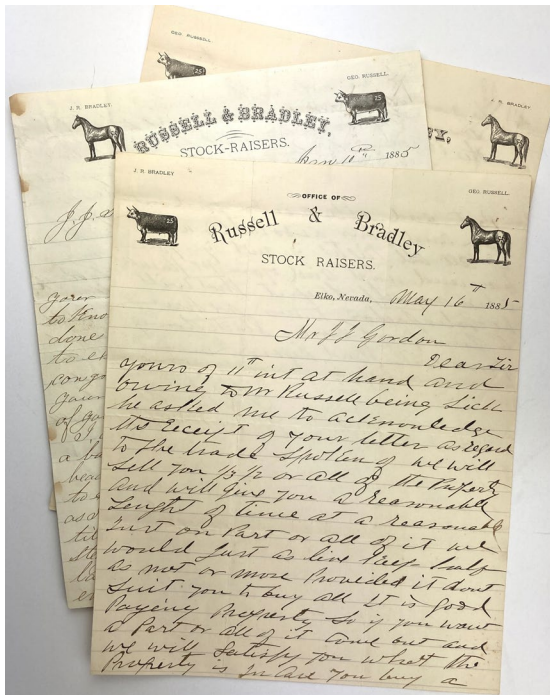 GEO. RUSSELL.
25
J. R. BRADLEY.
GEO. RUSSELL.
RUSSELL & BRADLEY,
25
STOCK-RAISERS.
1885
J. R. BRADLEY
EY,
J. R. BRADLEY
GEO. RUSSELL.
OFFICE OF
Russell & Bradley
25
STOCK RAISERS.
Elko, Nevada, May 16th 1885
Mr J J Gordon
Dear Sir
yours of 11th int at hand and
owing to Mr Russell being Sick
he asked me to acknowledge
its Receipt of your letter as regard
to the trade Spoken of we will
Sell you 1/3 1/2 or all of the Property
and will give you a reasonable
lenght of time at a reasonable
Inst on Part or all of it we
would Just as live keep half
as not or more Provided it dont
Suit you to buy all It is good
Payeny Property So if you want
a Part or all of it come out and
we will Satisfy you what the
Property is In Case you buy a
your
to kno
done
to
your
of
a b
to
as